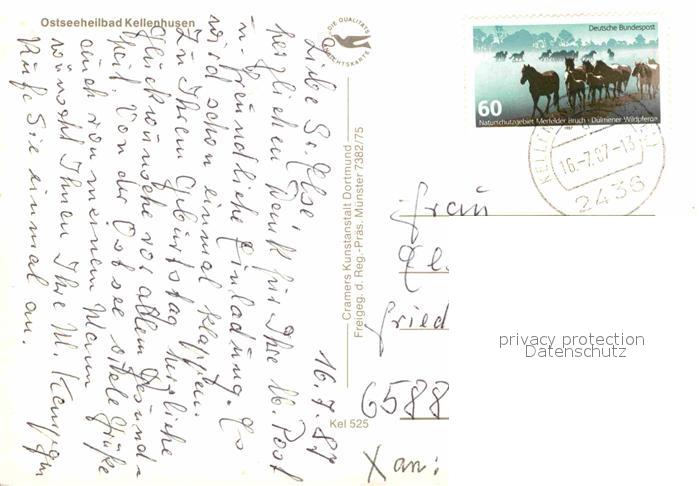 Ostseeheilbad Kellenhusen
DIE QUALITÄTS
ANSICHTSKARTE
16.7.87
Liebe Fr. Else!
herzlichen Dank für Ihre lb. Post
u. freundliche Einladung. Es
wird schon einmal klappen.
Zu Ihrem Geburtstag herzliche
Glückwünsche vor allem Gesund-
heit. Von der Ostsee viele Grüße
auch von meinem Mann
wünscht Ihnen Ihre M.
Rufe Sie einmal an.
Cramers Kunstanstalt Dortmund
Freigeg. d. Reg.-Präs. Münster 7382/75
Kel 525
Deutsche Bundespost
60
Naturschutzgebiet Merfelder Bruch · Dülmener Wildpferde
1987
16.-7.87-13
2436
Frau
Fried
6588
X an:
privacy protection
Datenschutz